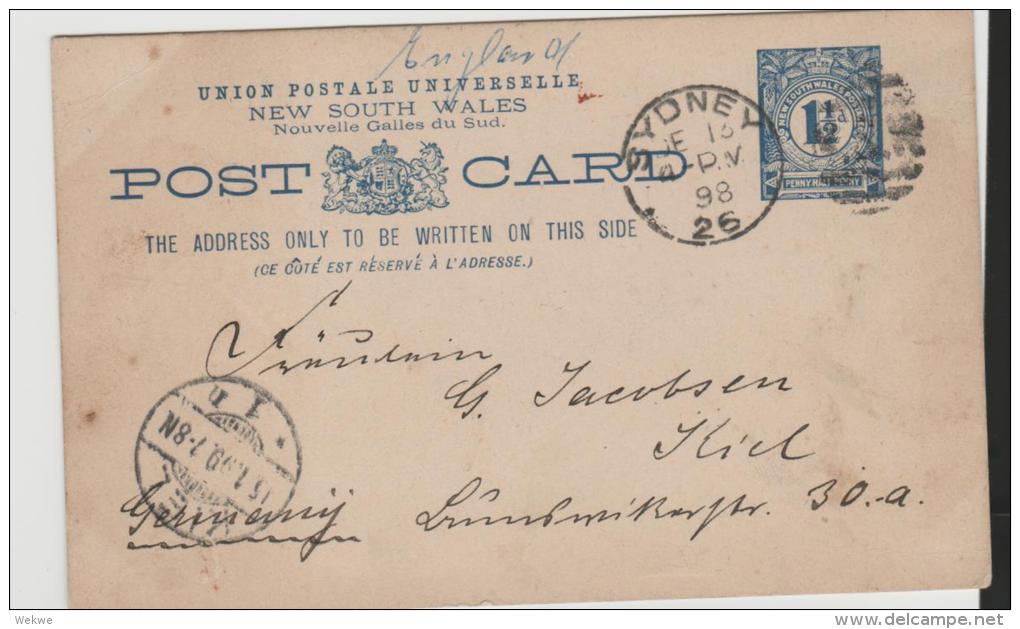 England
UNION POSTALE UNIVERSELLE
NEW SOUTH WALES
Nouvelle Galles du Sud.
POST CARD
THE ADDRESS ONLY TO BE WRITTEN ON THIS SIDE
(CE CÔTÉ EST RÉSERVÉ À L'ADRESSE.)
NEW SOUTH WALES
1½d
PENNY HALFPENNY
SYDNEY
DE 13
P.M
98
26
Fräulein
G. Jacobsen
Kiel
Germany
Brunswikerstr. 30.-a.
15.1.99.7-8N
Wekwe
delcampe.net